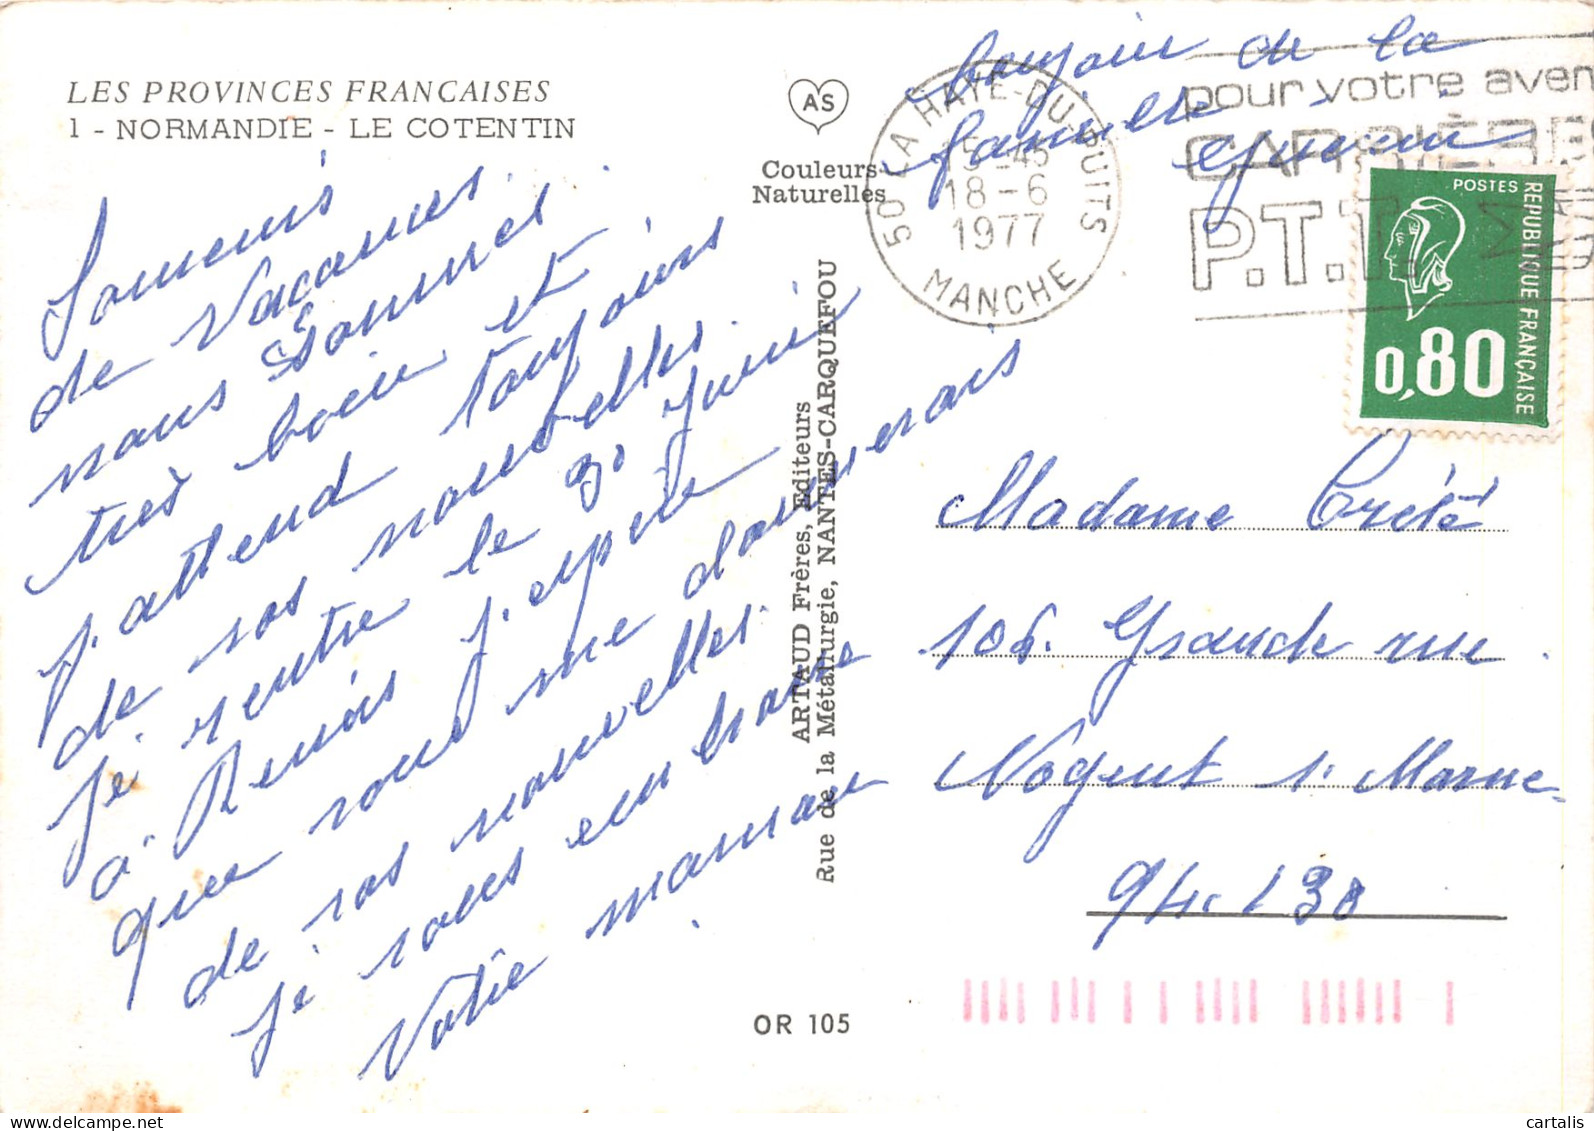 LES PROVINCES FRANCAISES
1 - NORMANDIE - LE COTENTIN
Souvenis
de Vacances.
nous sommes
très bien et
j'attend toujours
de vos nouvelles.
je rentre le 30 Juin
à Renois j'espère
que vous me donnerais
de vos nouvelles.
je vous embrasse
Votre maman
AS
Couleurs
Naturelles
ARTAUD Frères, Editeurs
Rue de la Métallurgie, NANTES-CARQUEFOU
OR 105
bonjour de la
famille
50 LA HAYE-DU-PUITS
15-45
18-6
1977
MANCHE
pour votre aven
CARRIÈRE
P.T.T.
POSTES
REPUBLIQUE FRANÇAISE
0,80
Madame Crété
106. Grande rue.
Nogent s. Marne
94.130
cartalis.com